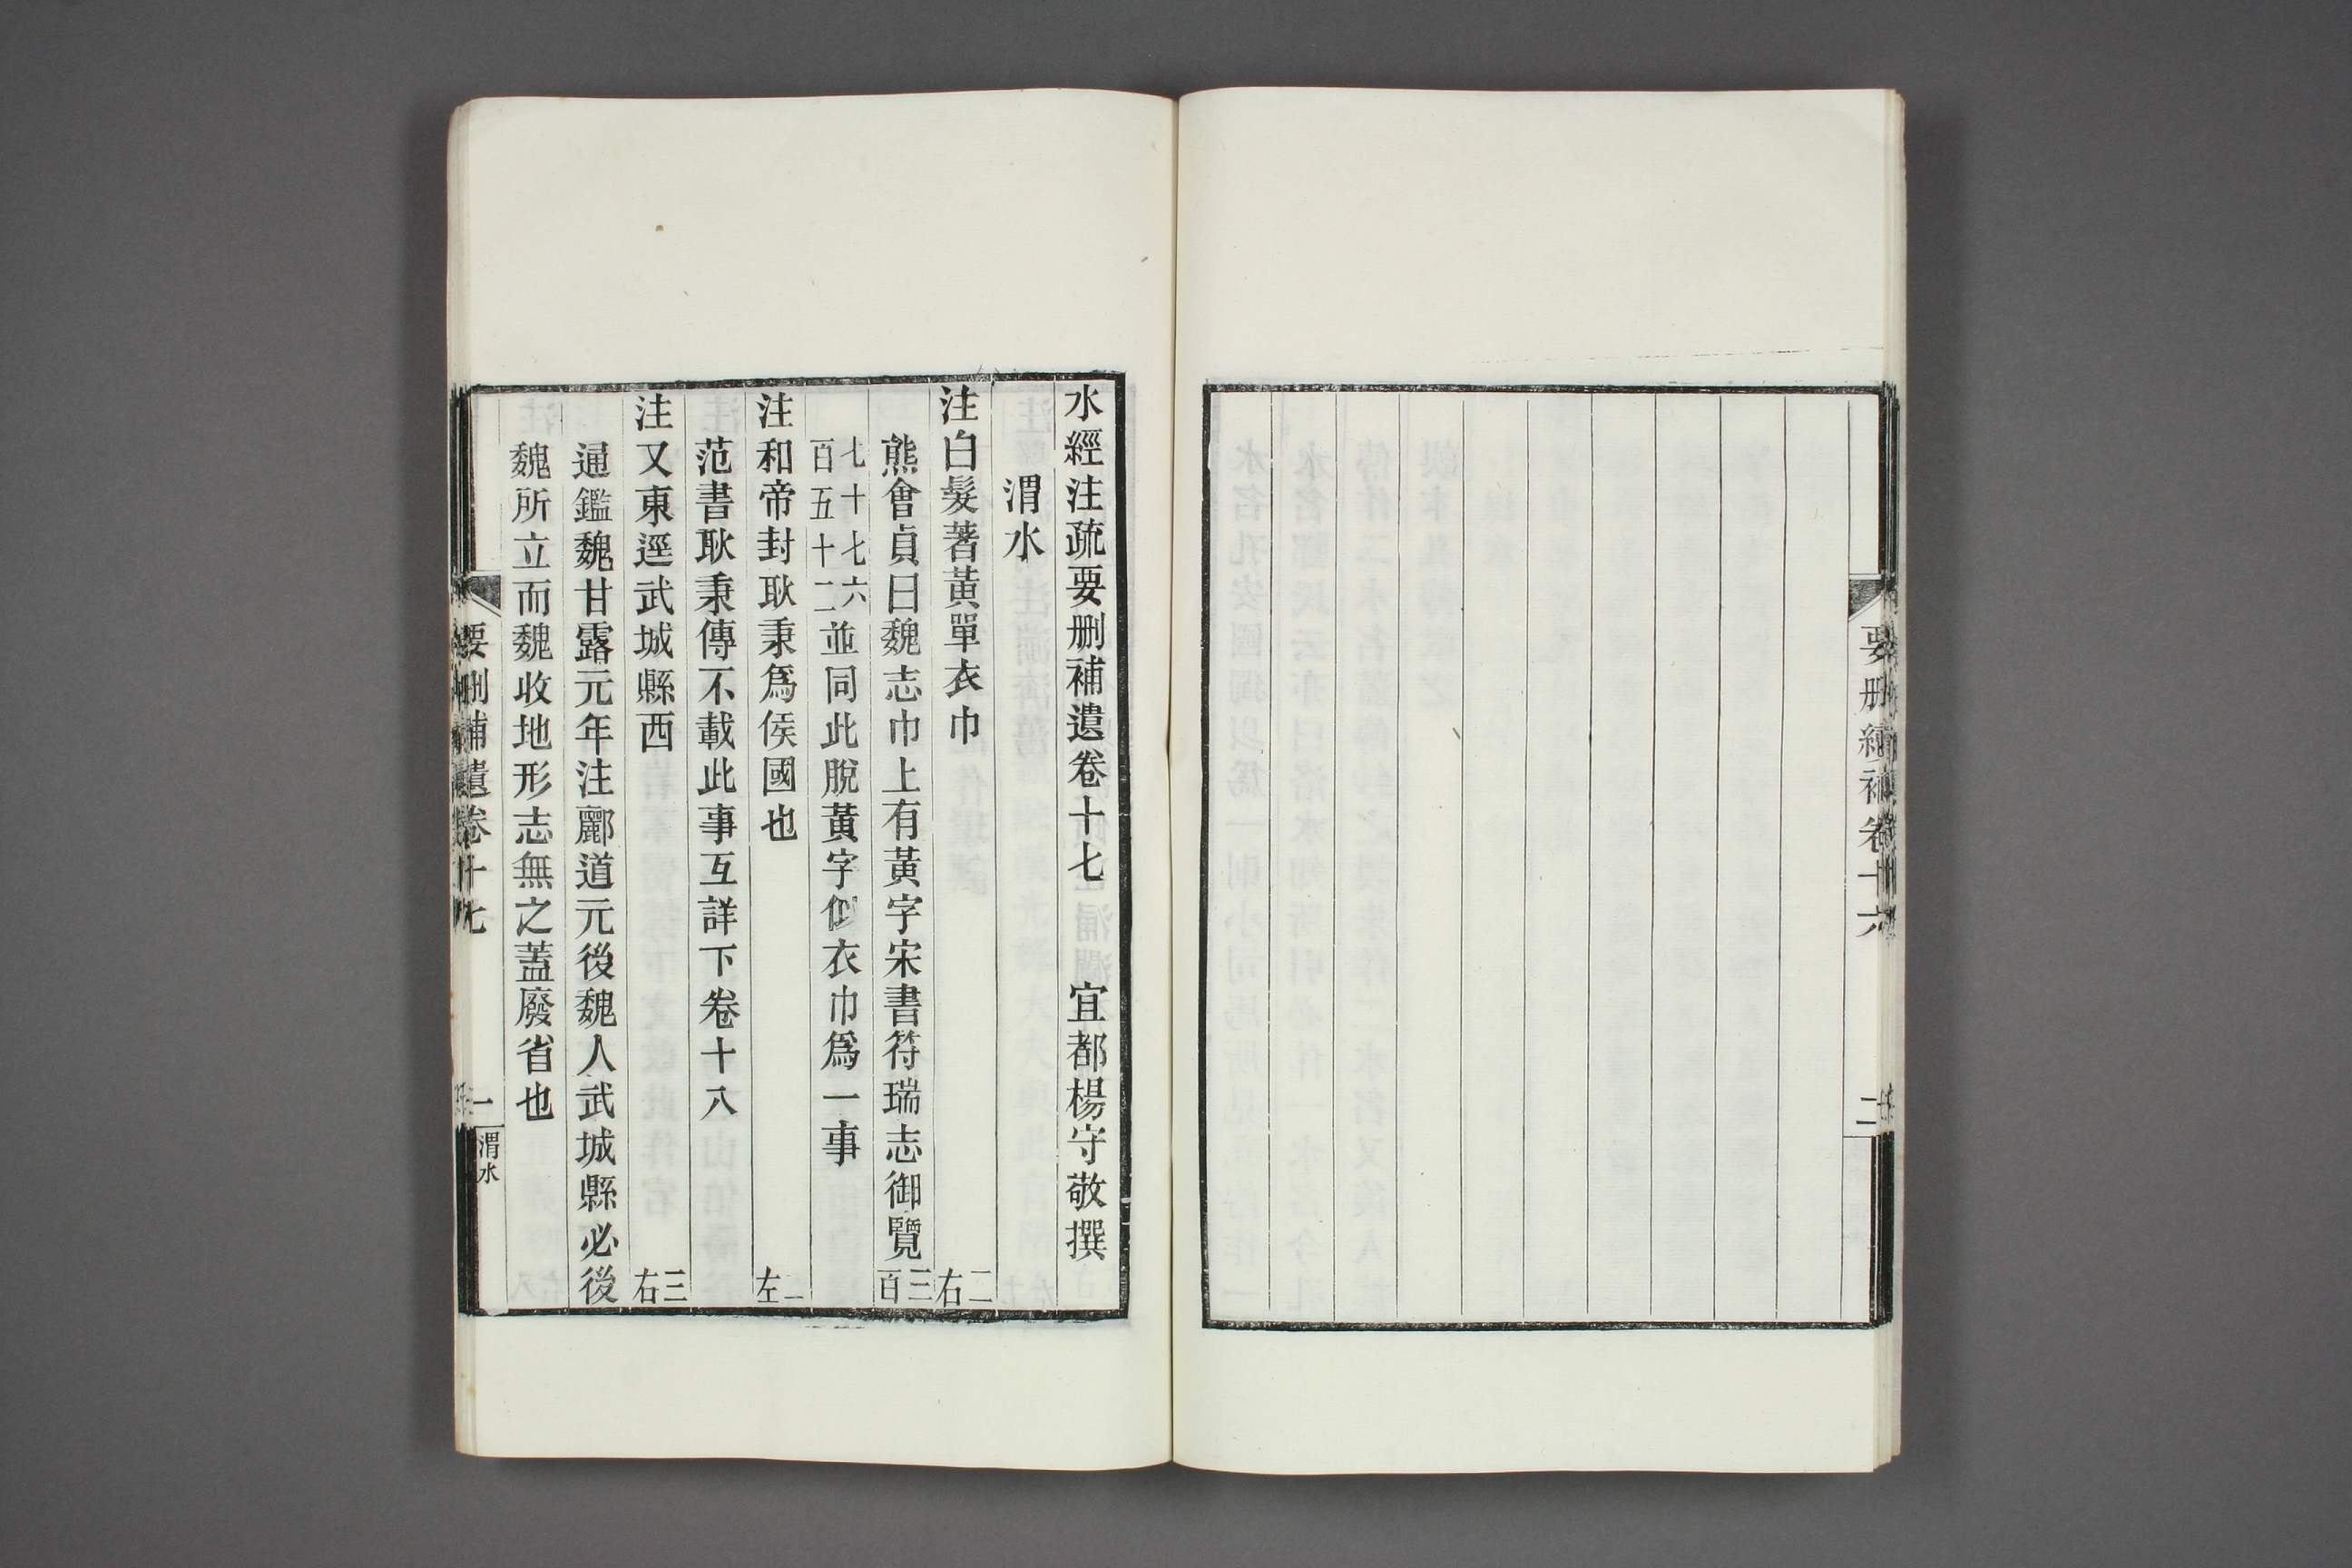 要刪續補卷十六
二
水經注疏要刪補遺卷十七　宜都楊守敬撰
渭水
注白髮著黃單衣巾　二右
熊會貞曰魏志巾上有黃字宋書符瑞志御覽三百
七十七六百五十二並同此脫黃字似衣巾爲一事
注和帝封耿秉爲侯國也　二左
范書耿秉傳不載此事互詳下卷十八
注又東逕武城縣西　三右
通鑑魏甘露元年注酈道元後魏人武城縣必後
魏所立而魏收地形志無之蓋廢省也
要刪補遺卷十七
一
渭水